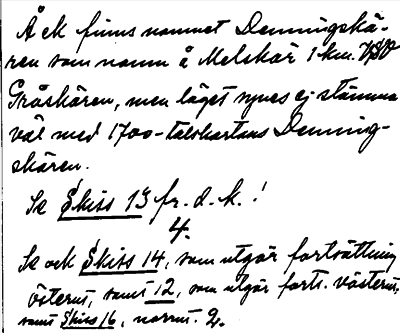 Å ek finns namnet Denningskä-
ren som namn å Melskär 1 km. VSV
Gråskären, men läget synes ej stämma
väl med 1700-talskartans Denning-
skären.
Se Skiss 13 fr. d. k. !
4.
Se ock Skiss 14, som utgör fortsättning
österut, samt 12, som utgör forts. västerut,
samt Skiss 16, norrut. 2.